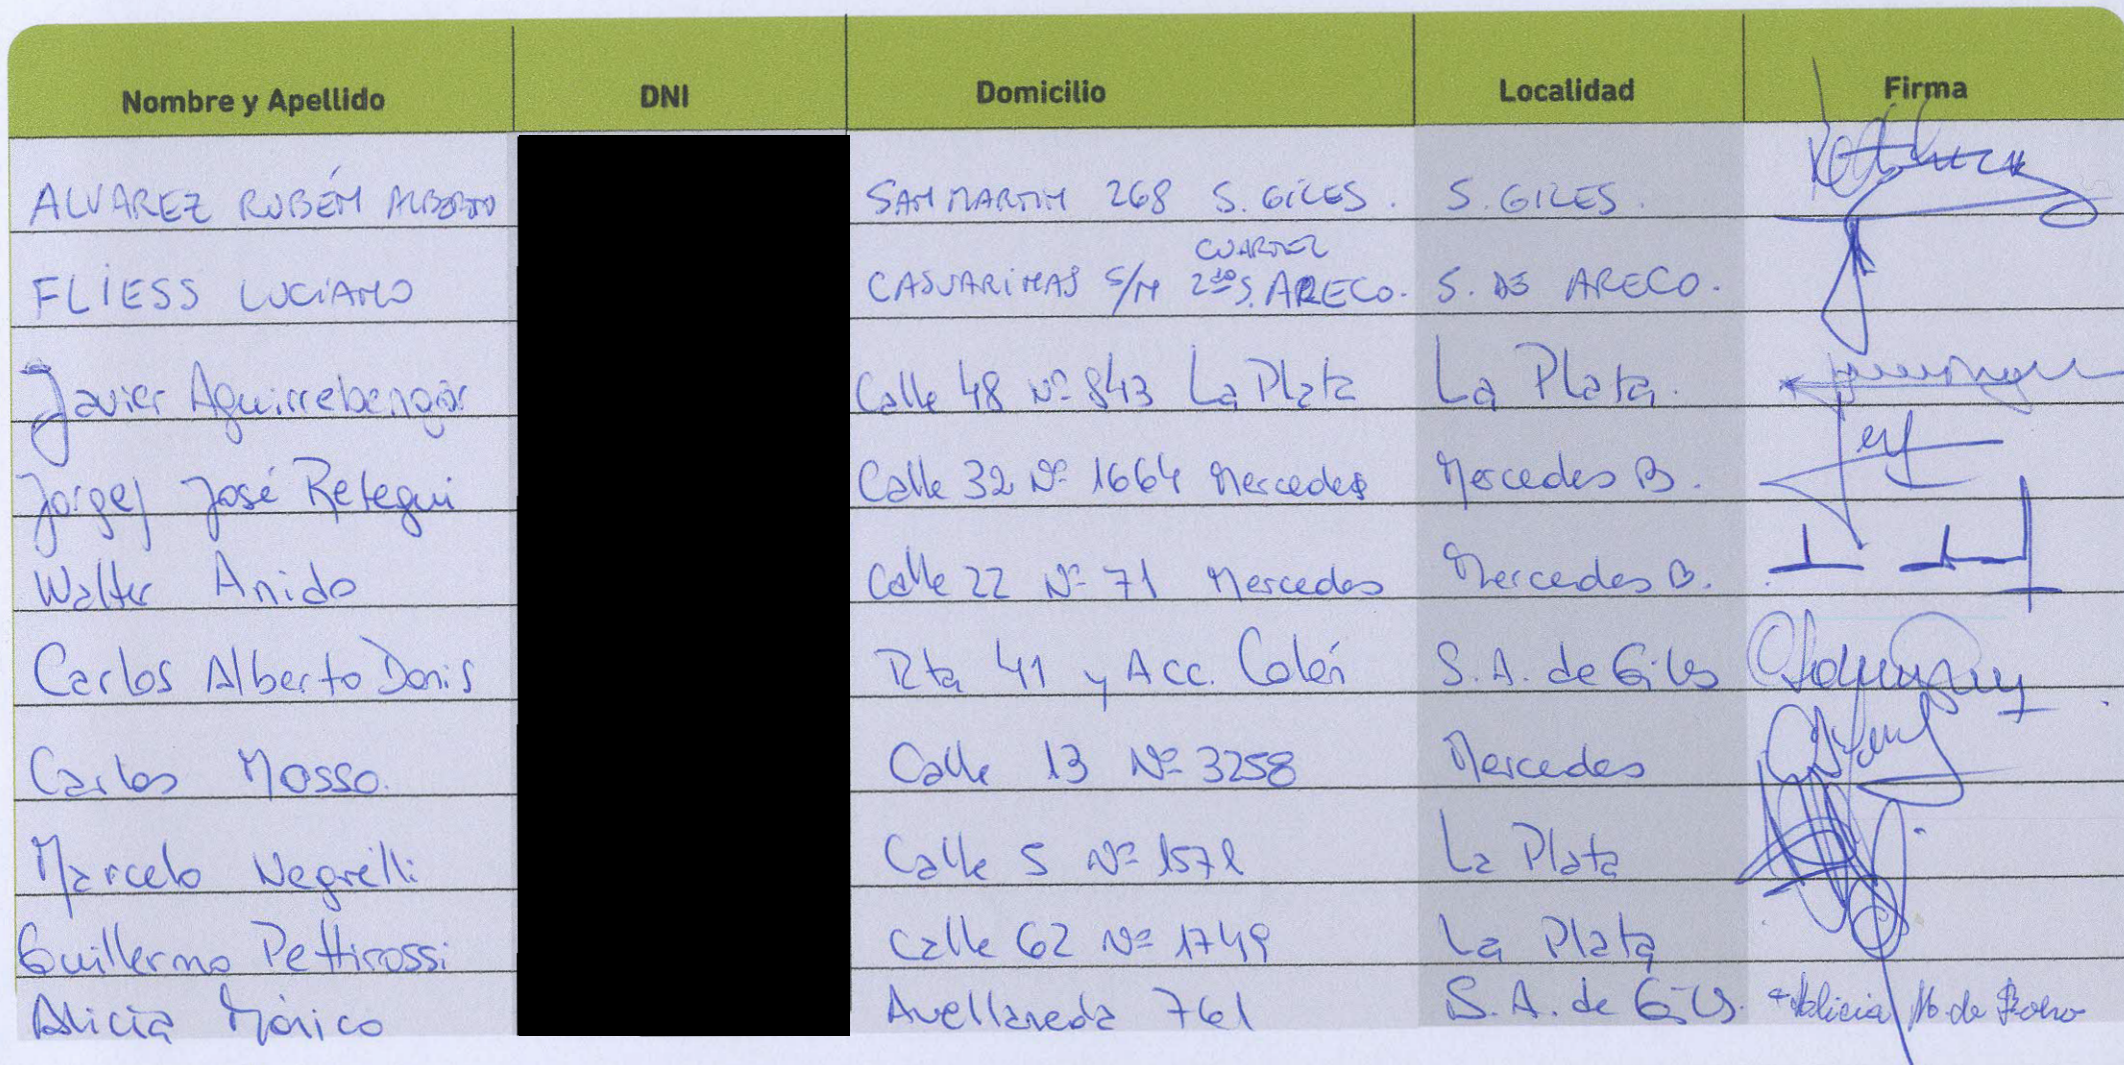 Nombre y Apellido DNI Domicilio Localidad Firma
ALVAREZ RUBÉN ALBERTO SAN MARTIN 268 S. GILES. S. GILES.
CUARTEL
FLIESS LUCIANO CASUARINAS S/N 2do S. ARECO. S. DE ARECO.
Javier Aguirrebengoa Calle 48 Nº 843 La Plata La Plata.
Jorge José Retegui Calle 32 Nº 1664 Mercedes Mercedes B.
Walter Anido Calle 22 Nº 71 Mercedes Mercedes B.
Carlos Alberto Donis Rta 41 y Acc. Colón S.A. de Giles
Carlos Mosso. Calle 13 Nº 3258 Mercedes
Marcelo Negrelli Calle 5 Nº 1571 La Plata
Guillermo Pettirossi Calle 62 Nº 1749 La Plata
Alicia Mónico Avellaneda 761 S.A. de Giles. Alicia M. de